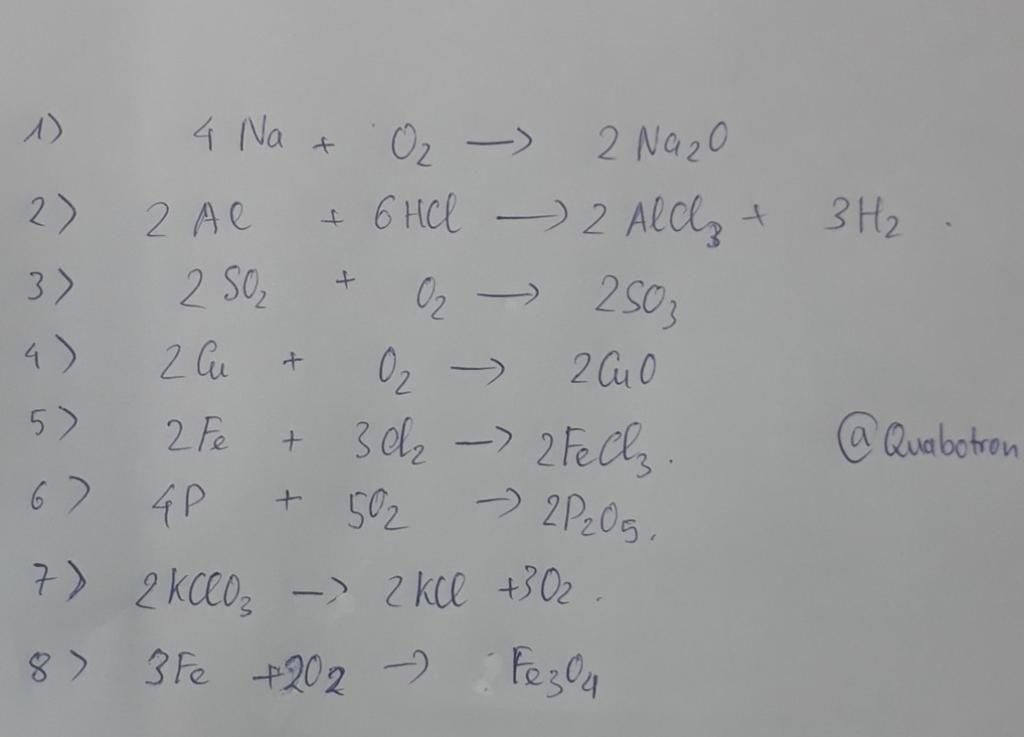 1) 4 Na + O2 → 2 Na2O
2) 2 Al + 6HCl → 2 AlCl3 + 3H2 .
3) 2 SO2 + O2 → 2SO3
4) 2Cu + O2 → 2CuO
5) 2Fe + 3Cl2 → 2FeCl3.
@Quabotron
6) 4P + 5O2 → 2P2O5.
7) 2KClO3 → 2KCl +3O2 .
8) 3Fe +2O2 → Fe3O4